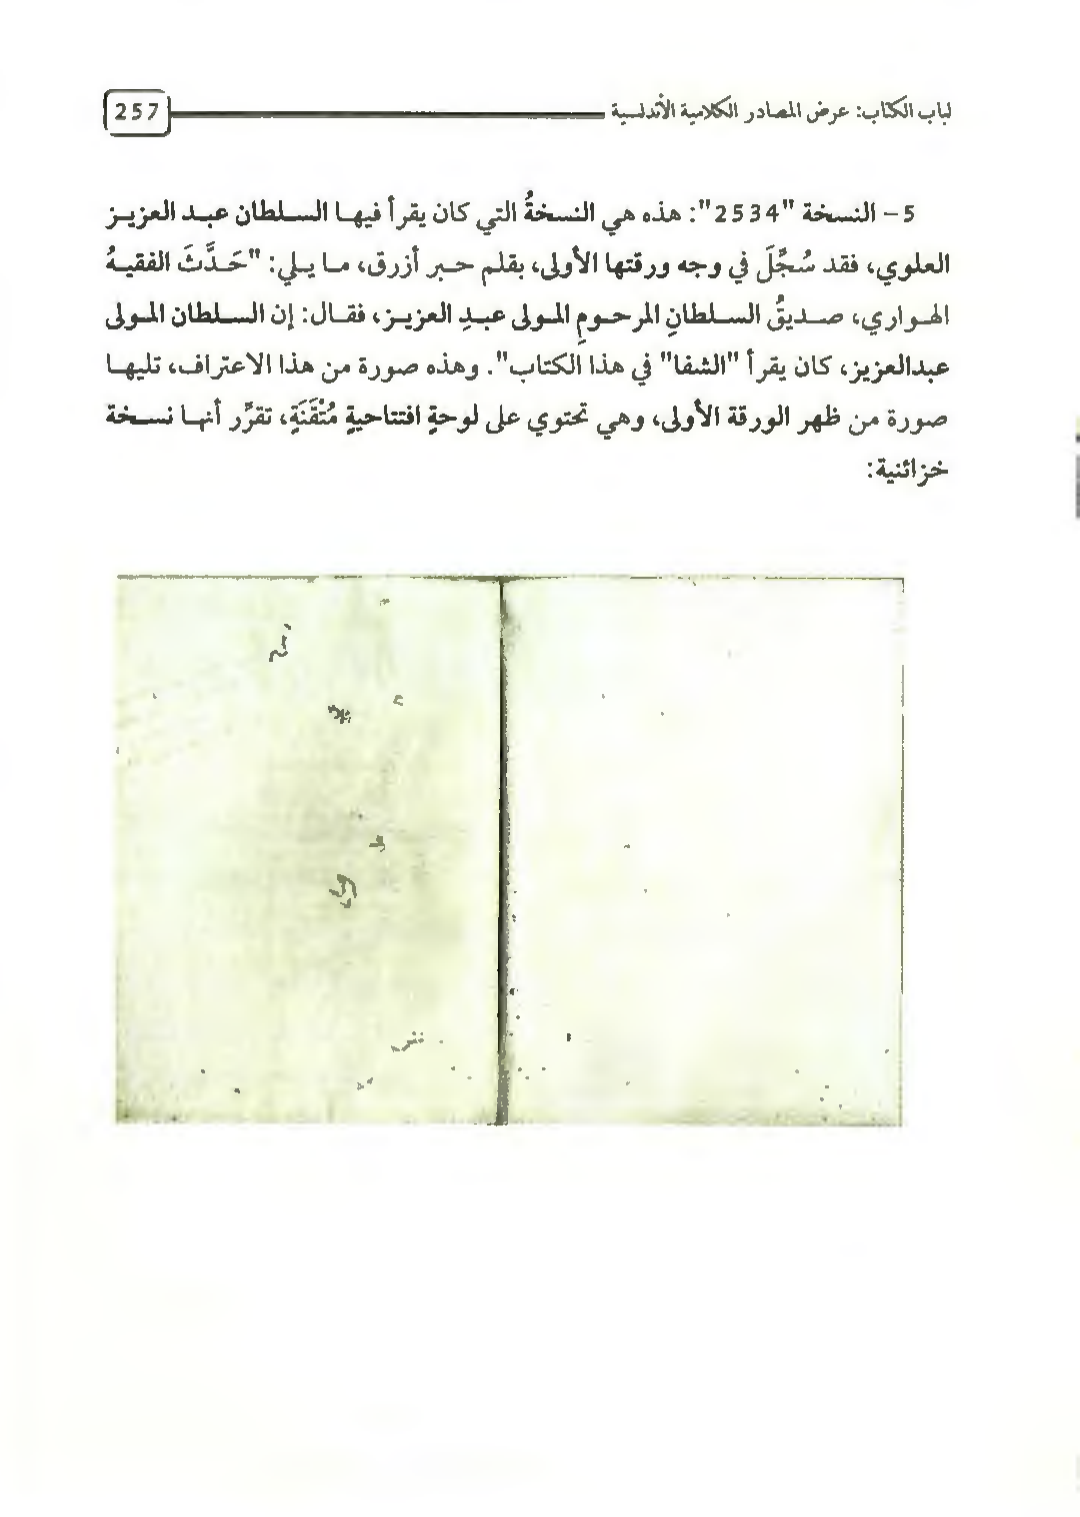 لباب الكتاب: عرض المصادر الكلامية الأندلسية 257
5 – النسخة "2534": هذه هي النسخةُ التي كان يقرأ فيها السلطان عبد العزيز
العلوي، فقد سُجِّلَ في وجه ورقتها الأولى، بقلم حبر أزرق، ما يلي: "حَدَّثَ الفقيهُ
الهواري، صديقُ السلطانِ المرحومِ المولى عبدِ العزيز، فقال: إن السلطان المولى
عبدالعزيز، كان يقرأ "الشفا" في هذا الكتاب". وهذه صورة من هذا الاعتراف، تليها
صورة من ظهر الورقة الأولى، وهي تحتوي على لوحةٍ افتتاحيةٍ مُتْقَنَةٍ، تقرِّر أنها نسخة
خزائنية: